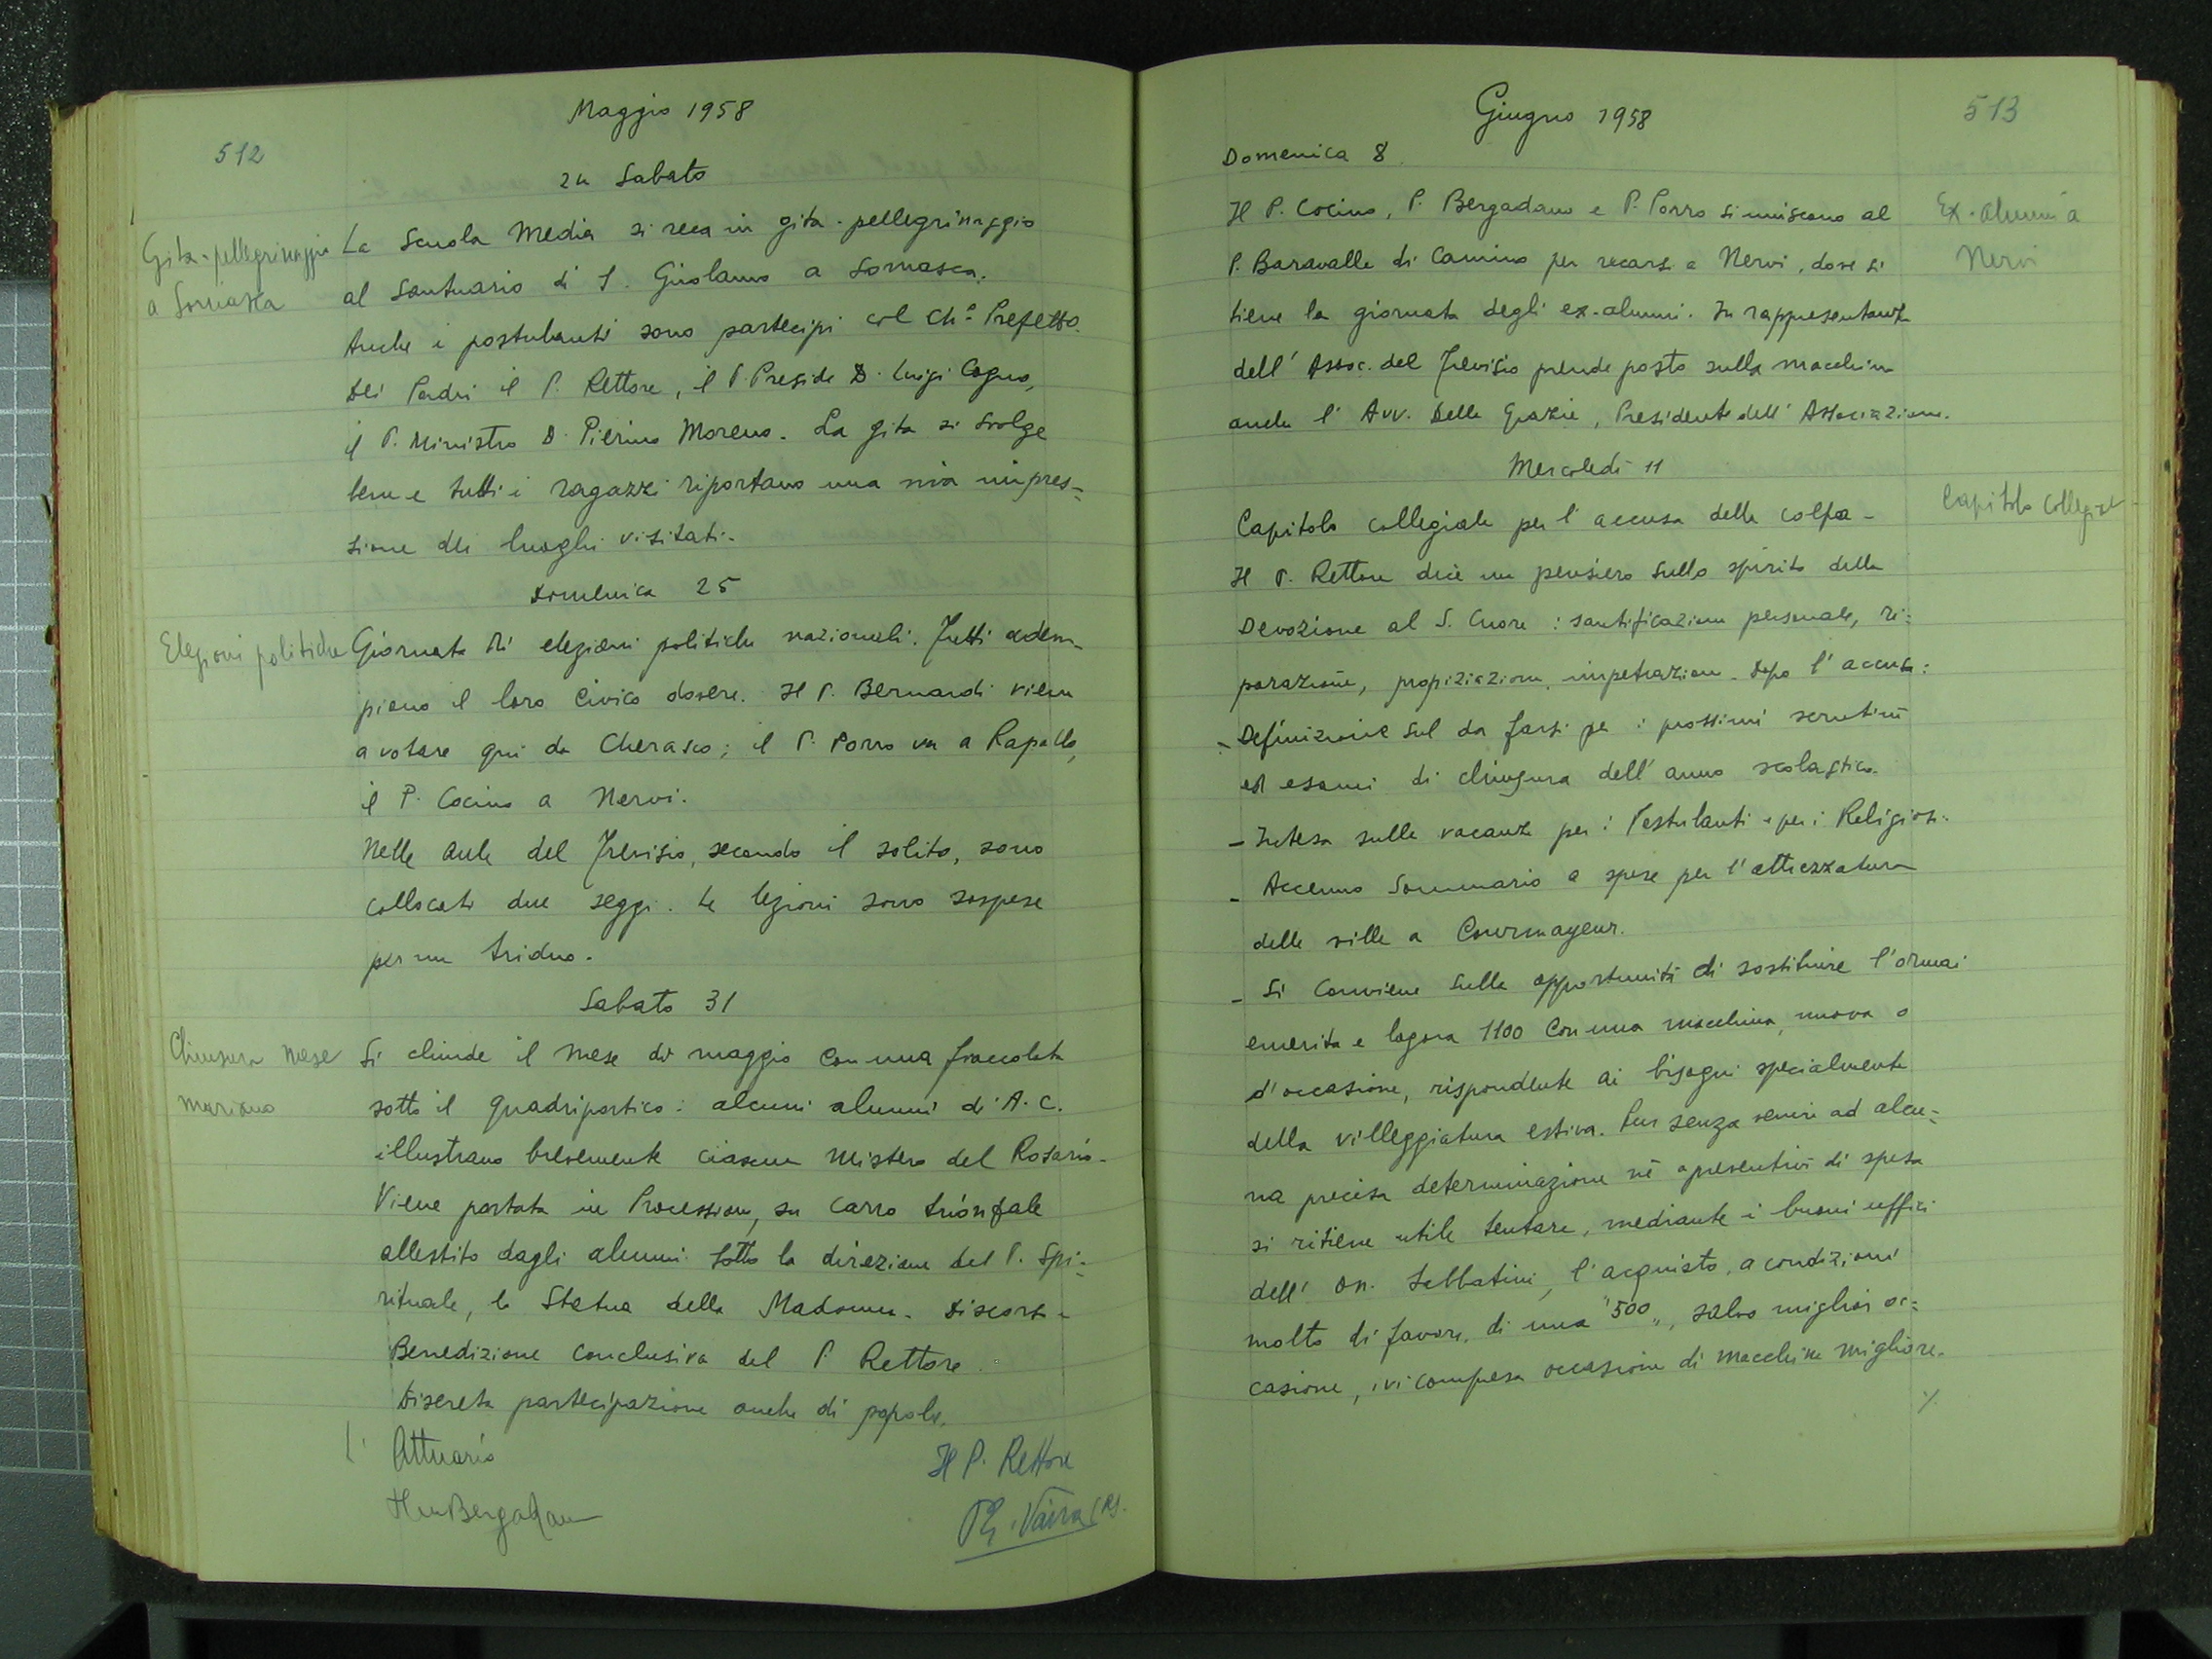 512
Maggio 1958
24 Sabato
Gita-pellegrinaggio
a Somasca
La Scuola Media si reca in gita-pellegrinaggio
al Santuario di S. Girolamo a Somasca.
Anche i postulanti sono partecipi col Ch.º Prefetto.
Dei Padri il P. Rettore, il P. Preside D. Luigi Cogno,
il P. Ministro D. Pierino Moreno. La gita si svolge
bene e tutti i ragazzi riportano una viva impres-
sione dei luoghi visitati.
Domenica 25
Elezioni politiche
Giornata di elezioni politiche nazionali. Tutti adem-
piono il loro civico dovere. Il P. Bernardi viene
a votare qui da Cherasco; il P. Porro va a Rapallo,
il P. Cocino a Nervi.
Nelle aule del Trevisio, secondo il solito, sono
collocati due seggi. Le lezioni sono sospese
per un triduo.
Sabato 31
Chiusura mese
mariano
Si chiude il mese di maggio con una fiaccolata
sotto il quadriportico: alcuni alunni di A.C.
illustrano brevemente ciascun mistero del Rosario.
Viene portata in Processione, su carro trionfale
allestito dagli alunni sotto la direzione del P. Spi-
rituale, la Statua della Madonna. Discorso e
Benedizione conclusiva del P. Rettore.
Discreta partecipazione anche di popolo.
L'Attuario
Bergadano
Il P. Rettore
Vaira CRS.
Giugno 1958
513
Domenica 8
Ex-alunni a
Nervi
Il P. Cocino, P. Bergadano e P. Porro si uniscono al
P. Baravalle di Camino per recarsi a Nervi, dove si
tiene la giornata degli ex-alunni. In rappresentanza
dell'Assoc. del Trevisio prende posto sulla macchina
anche l'Avv. Delle Grazie, Presidente dell'Associazione.
Mercoledì 11
Capitolo Collegiale
Capitolo collegiale per l'accusa della colpa -
Il P. Rettore dice un pensiero sullo spirito della
Devozione al S. Cuore: santificazione personale, ri-
parazione, propiziazione, impetrazione. Dopo l'accusa:
- Definizione sul da farsi per i prossimi scrutini
ed esami di chiusura dell'anno scolastico.
- Intesa sulle vacanze per i Postulanti e per i Religiosi.
- Accenno Sommario a spese per l'attrezzatura
delle ville a Courmayeur.
- Si conviene sulla opportunità di sostituire l'ormai
emerita e logora 1100 con una macchina, nuova o
d'occasione, rispondente ai bisogni specialmente
della villeggiatura estiva. Pur senza venire ad alcu-
na precisa determinazione né a preventivi di spesa
si ritiene utile tentare, mediante i buoni uffici
dell'On. Sabbatini, l'acquisto, a condizioni
molto di favore, di una "500", salvo miglior oc-
casione, ivi compresa occasione di macchine migliore.
./.